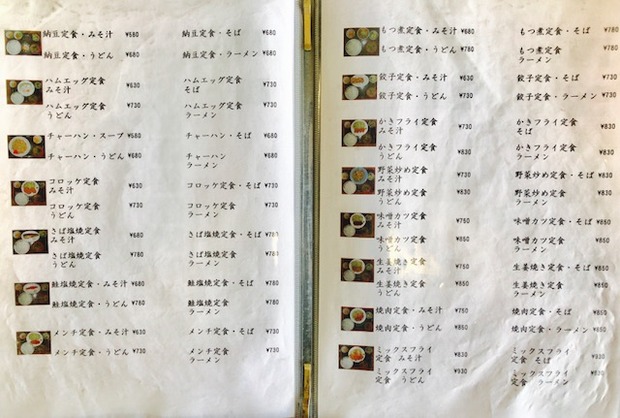 納豆定食・みそ汁 ¥580 納豆定食・そば ¥680
納豆定食・うどん ¥680 納豆定食・ラーメン ¥680
ハムエッグ定食 ¥630 ハムエッグ定食 ¥730
みそ汁 そば
ハムエッグ定食 ¥730 ハムエッグ定食 ¥730
うどん ラーメン
チャーハン・スープ ¥580 チャーハン・そば ¥680
チャーハン・うどん ¥680 チャーハン ¥680
ラーメン
コロッケ定食 ¥630 コロッケ定食・そば ¥730
みそ汁
コロッケ定食 ¥730 コロッケ定食 ¥730
うどん ラーメン
さば塩焼定食 ¥680 さば塩焼定食・そば
みそ汁
さば塩焼定食 ¥780 さば塩焼定食 ¥780
うどん ラーメン
鮭塩焼定食・みそ汁 ¥680 鮭塩焼定食・そば ¥780
鮭塩焼定食・うどん ¥780 鮭塩焼定食 ¥780
ラーメン
メンチ定食・みそ汁 ¥630 メンチ定食・そば ¥730
メンチ定食・うどん ¥730 メンチ定食 ¥730
ラーメン
もつ煮定食・みそ汁 ¥680 もつ煮定食・そば ¥780
もつ煮定食・うどん ¥780 もつ煮定食 ¥780
ラーメン
餃子定食・みそ汁 ¥630 餃子定食・そば ¥730
餃子定食・うどん ¥730 餃子定食・ラーメン ¥730
かきフライ定食 ¥730 かきフライ定食 ¥830
みそ汁 そば
かきフライ定食 ¥830 かきフライ定食 ¥830
うどん ラーメン
野菜炒め定食 ¥730 野菜炒め定食・そば ¥830
みそ汁
野菜炒め定食 ¥830 野菜炒め定食 ¥830
うどん ラーメン
味噌カツ定食 ¥750 味噌カツ定食・そば ¥850
みそ汁
味噌カツ定食 ¥850 味噌カツ定食 ¥850
うどん ラーメン
生姜焼き定食 ¥750 生姜焼き定食・そば ¥850
みそ汁
生姜焼き定食 ¥850 生姜焼き定食 ¥850
うどん ラーメン
焼肉定食・みそ汁 ¥750 焼肉定食・そば ¥850
焼肉定食・うどん ¥850 焼肉定食・ラーメン ¥850
ミックスフライ ¥830 ミックスフライ ¥930
定食 みそ汁 定食 そば
ミックスフライ ¥930 ミックスフライ ¥930
定食 うどん 定食 ラーメン